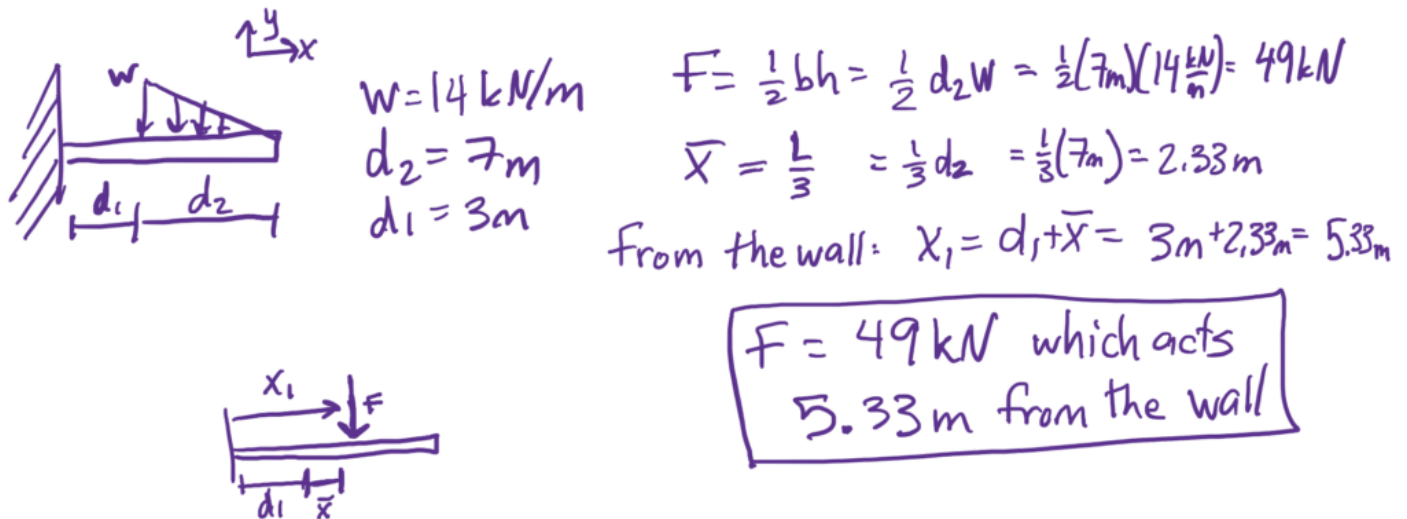 y
x
w
d₁ d₂
w = 14 kN/m
d₂ = 7m
d₁ = 3m
F = ½ bh = ½ d₂ w = ½(7m)(14 kN/m) = 49 kN
x̄ = L/3 = ⅓ d₂ = ⅓(7m) = 2.33 m
from the wall: x₁ = d₁ + x̄ = 3m + 2.33m = 5.33m
F = 49 kN which acts
5.33 m from the wall
x₁ F
d₁ x̄